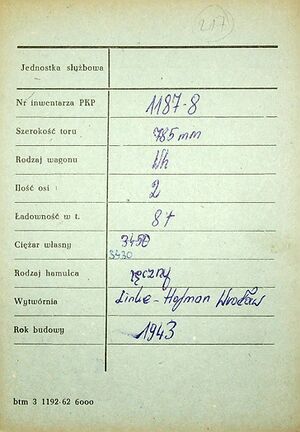 217
Jednostka służbowa
Nr inwentarza PKP 1187-8
Szerokość toru 785 mm
Rodzaj wagonu Wh
Ilość osi 2
Ładowność w t. 8 t
Ciężar własny 3450
3430
Rodzaj hamulca ręczny
Wytwórnia Linke-Hofman Wrocław
Rok budowy 1943
btm 3 1192-62 6000